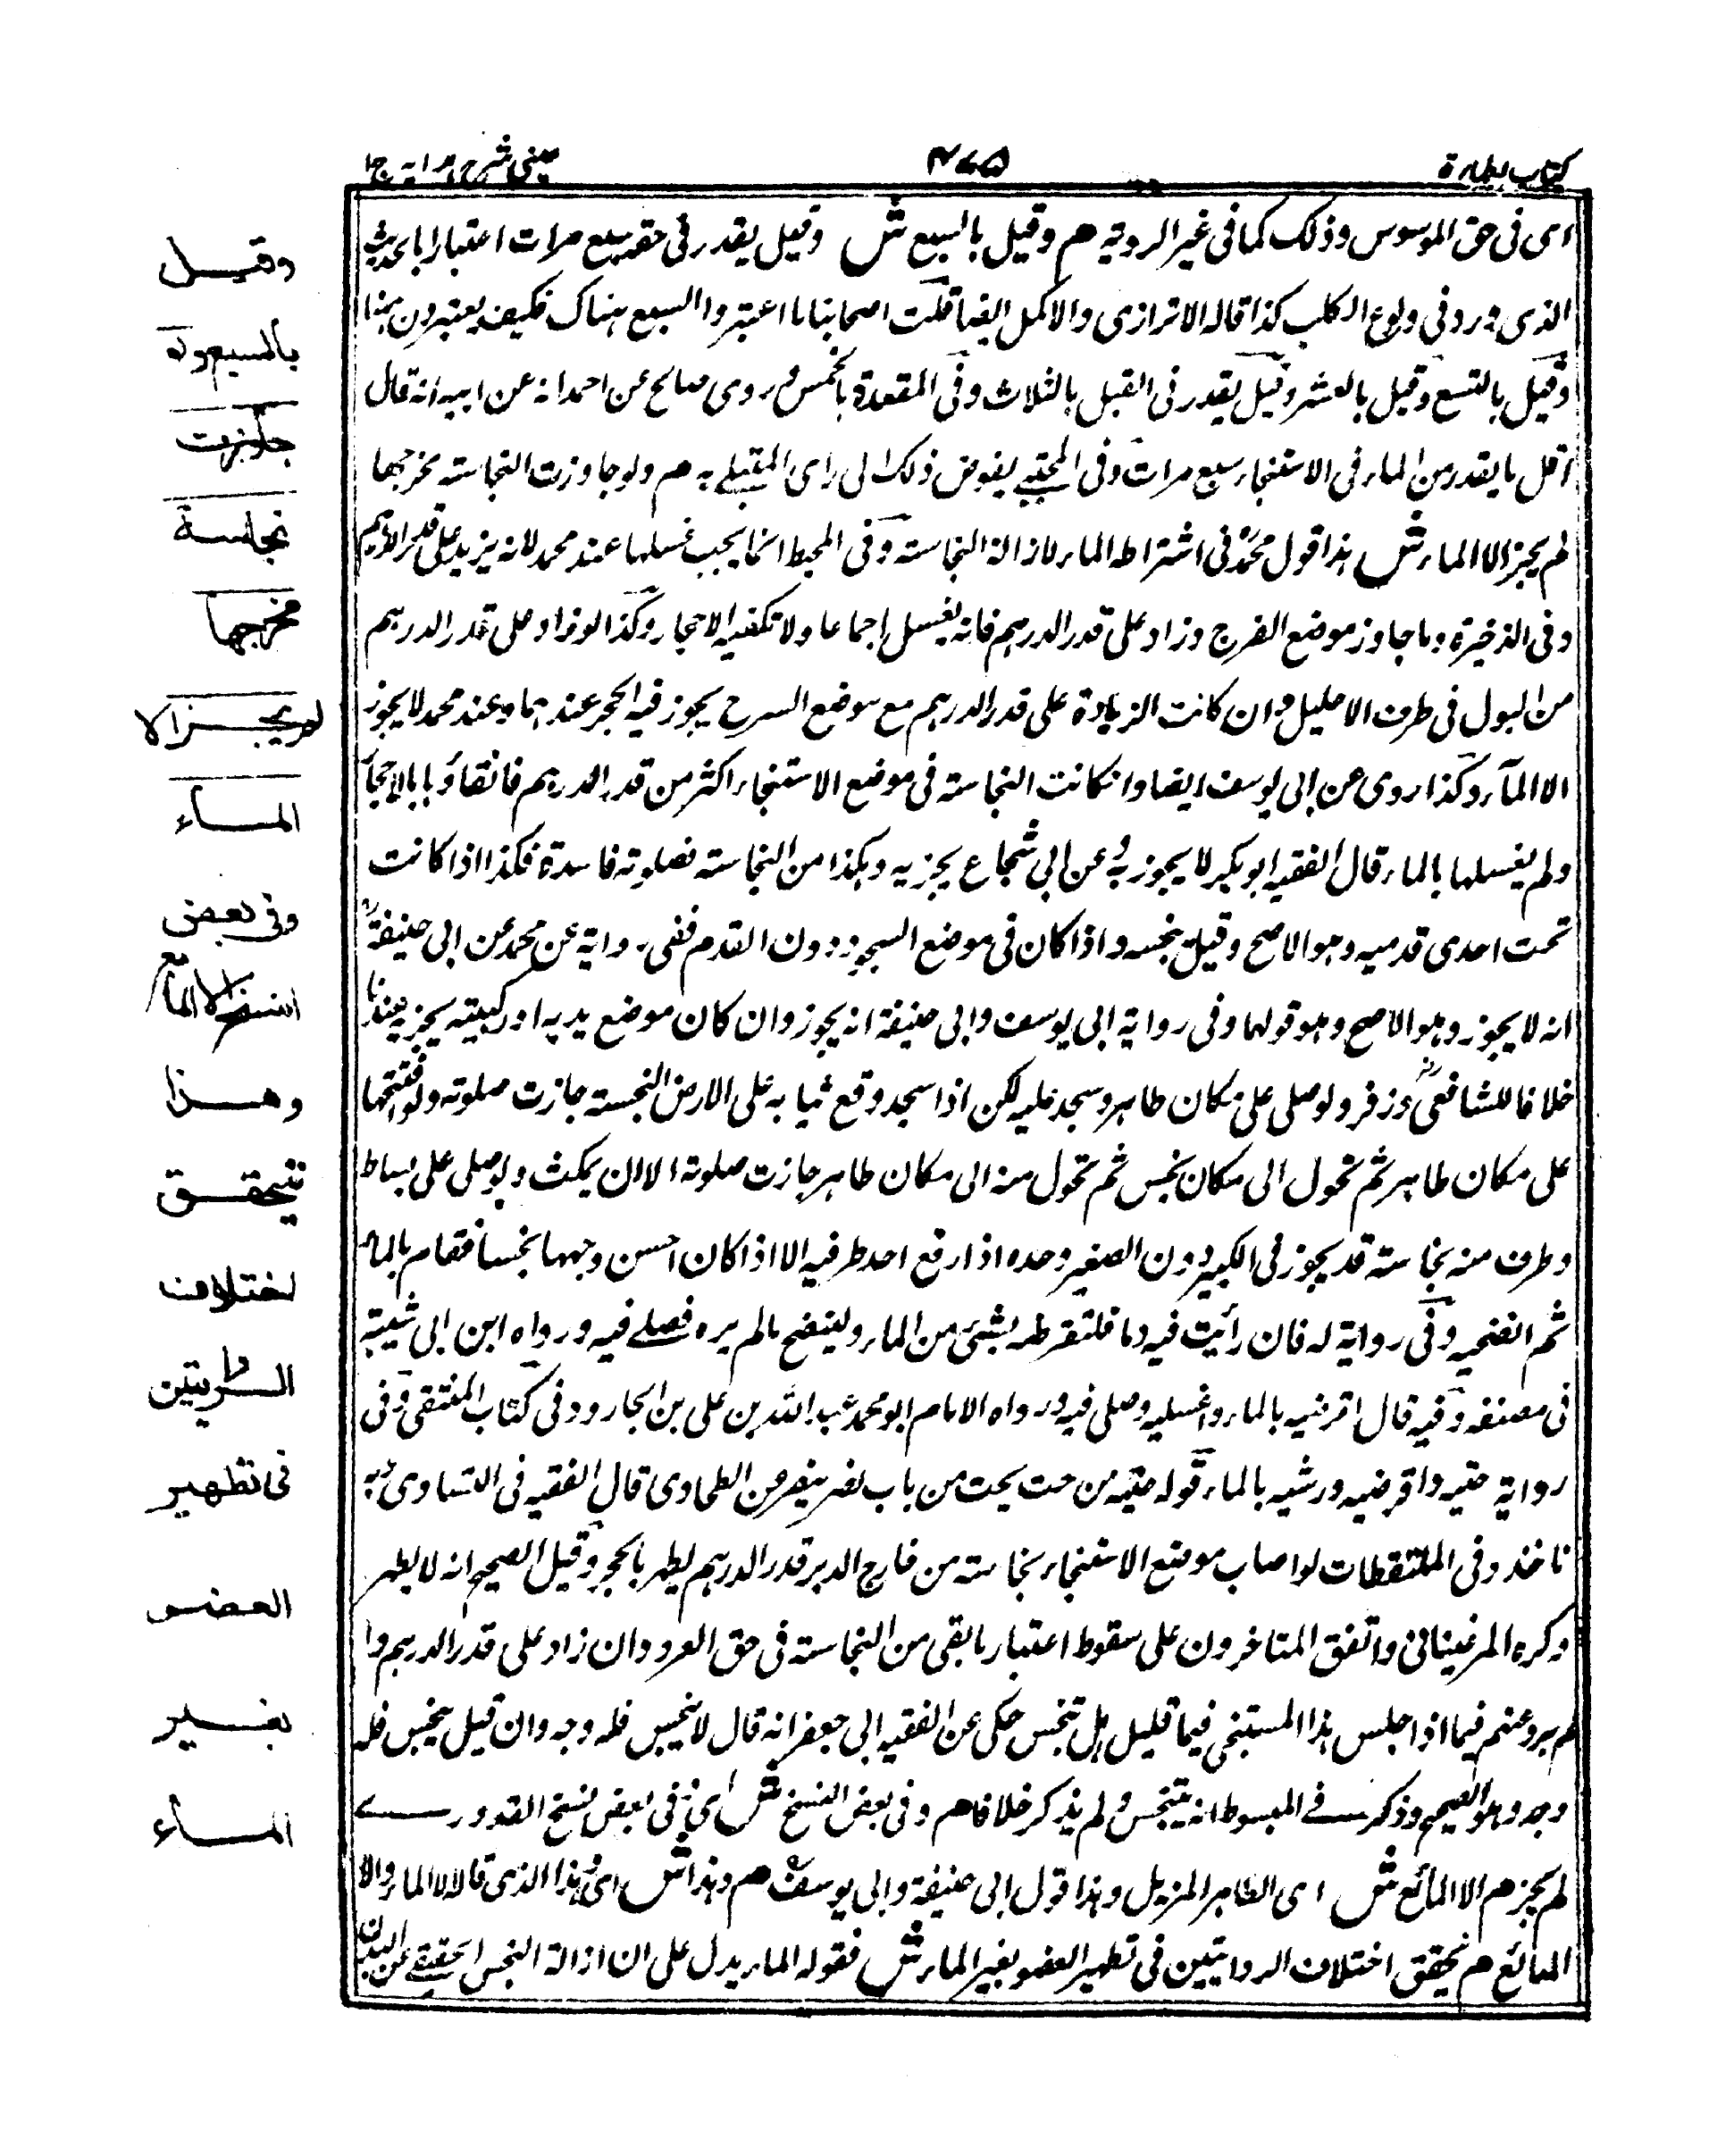 كتاب الطهارة
٤٧٥
عيني شرح هداية ج ١
اى فى حق الموسوس وذلك كما فى غير المروية هم وقيل بالسبع ش وقيل يقدر فى حقه بسبع مرات اعتبارا بالحديث
الذى ورد فى ولوغ الكلب كذا قاله الاترازى والاكمل ايضا قلت اصحابنا ما اعتبروا السبع هناك فكيف يعتبرون هنا
وقيل بالتسع وقيل بالعشر وقيل يقدر فى القبل بالثلاث وفى المقعدة بالخمس وروى صالح عن احمد انه عن ابيه انه قال
اقل ما يقدر من الماء فى الاستنجاء سبع مرات وفى المجتبى يفوض ذلك الى راى المبتلى به هم ولو جاوزت النجاسة مخرجها
لم يجز الا الماء ش هذا قول محمد فى اشتراط الماء لازالة النجاسة وفى المحيط انما يجب غسلها عند محمد لانه يزيد على قدر الدرهم
وفى الذخيرة وما جاوز موضع الفرج وزاد على قدر الدرهم فانه يغسل اجماعا ولا تكفيه الاحجار وكذا لو زاد على قدر الدرهم
من البول فى طرف الاحليل وان كانت الزيادة على قدر الدرهم مع موضع السرج يجوز فيه الحجر عندهما وعند محمد لا يجوز
الا المآء وكذا روى عن ابى يوسف ايضا وان كانت النجاسة فى موضع الاستنجاء اكثر من قدر الدرهم فانقاؤها بالاحجار
ولم يغسلها بالماء قال الفقيه ابو بكر لا يجوز به وعن ابى شجاع يجزيه وهكذا من النجاسة فصلوته فاسدة فكذا اذا كانت
تحت احدى قدميه وهو الاصح وقيل بنجسه واذا كان فى موضع السجود دون القدم ففى رواية عن محمد عن ابى حنيفة
انه لا يجوز وهو الاصح وهو قولهما وفى رواية ابى يوسف وابى حنيفة انه يجوز وان كان موضع يديه او ركبتيه يجزيه عندنا
خلافا للشافعى وزفر ولو صلى على مكان طاهر وسجد عليه لكن اذا سجد وقع ثيابه على الارض النجسة جازت صلوته ولو افتتحها
على مكان طاهر ثم تحول الى مكان نجس ثم تحول منه الى مكان طاهر جازت صلوته الا ان يمكث ولو صلى على بساط
وطرف منه نجاسة قد يجوز فى الكبير دون الصغير وحده اذا رفع احد طرفيه الا اذا كان احسن وجهها نجسا فقام بالماء
ثم انضحيه وفى رواية له فان رأيت فيه دما فلتقرطه بشىء من الماء ولينضح مالم يره فصلى فيه ورواه ابن ابى شيبة
فى مصنفه وفيه قال اقرضيه بالماء واغسليه وصلى فيه ورواه الامام ابو محمد عبد الله بن على بن الجارود فى كتاب المنتقى وفى
رواية حتيه واقرضيه ورشيه بالماء قوله حتيه من حت يحت من باب نصر ينصر عن الطحاوى قال الفقيه فى الفتاوى وبه
ناخذ وفى الملتقطات لو اصاب موضع الاستنجاء نجاسة من خارج الدبر قدر الدرهم يطهر بالحجر وقيل الصحيح انه لا يطهر
ذكره المرغينانى واتفق المتاخرون على سقوط اعتبار ما بقى من النجاسة فى حق العرق وان زاد على قدر الدرهم وا
لم يرو عنهم فيما اذا جلس هذا المستنجى فيما قليل هل تنجس حكى عن الفقيه ابى جعفر انه قال لا ينجس فله وجه وان قيل ينجس فله
وجه وهو الصحيح وذكر فى المبسوط انه يتنجس ولم يذكر خلافا هم وفى بعض النسخ ش اى فى بعض نسخ القدورى
لم يجز هم الا المائع ش اى الطاهر المزيل وهذا قول ابى حنيفة وابى يوسف هم وهذا ش اى هذا الذى قالا لا الماء والا
المائع هم يحقق اختلاف الروايتين فى تطهير العضو بغير الماء ش فقوله الماء يدل على ان ازالة النجس الحقيقى عن البدن
وقيل
بالسبع ولو
جاوزت
نجاسة
مخرجها
لم يجز الا
الماء
وفى بعض
النسخ الا المائع
وهذا
يتحقق
اختلاف
الروايتين
فى تطهير
العضو
بغير
الماء